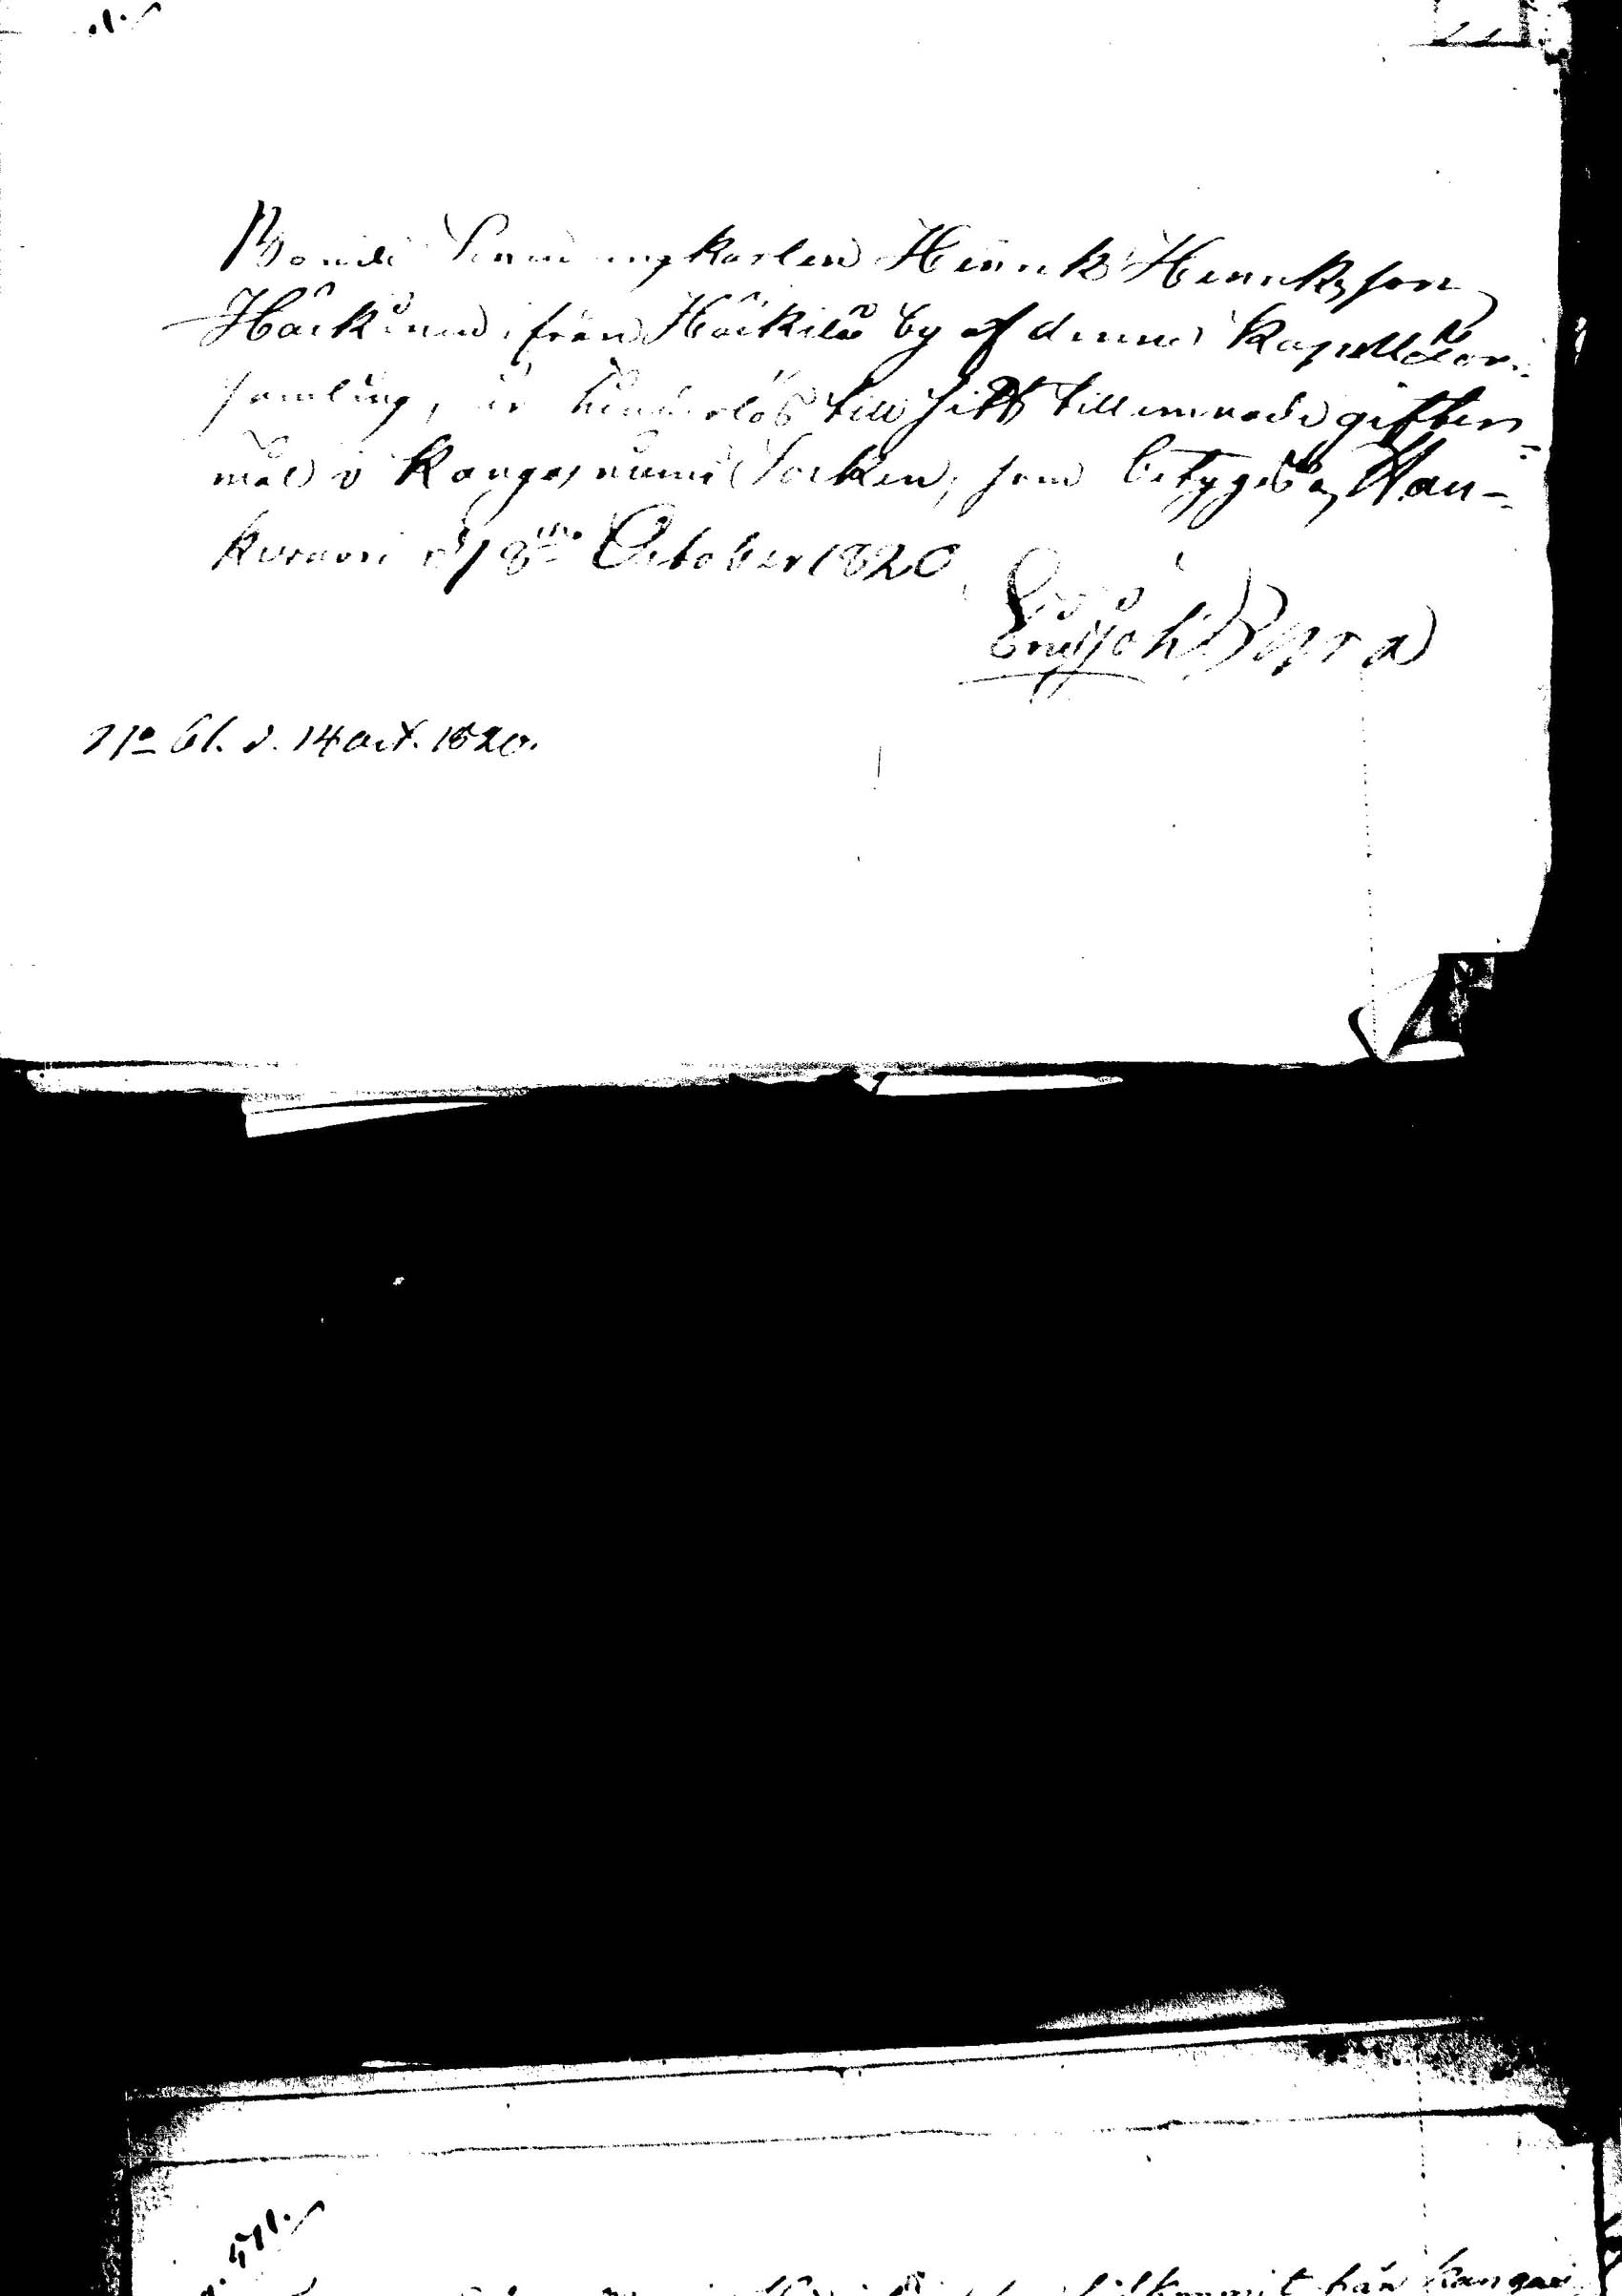 Bonde Sonen ungkarlen Henrik Henriksson
Häckinen, från Häckilä by af denna Kapell För-
samling, är hinderlös till sitt tillernade giften-
mål i Kangasniemi Socken, som betygas, Hau-
kivuori d 8de October 1820
Joh
No 61. d. 14 Oct. 1820.
från Kangas